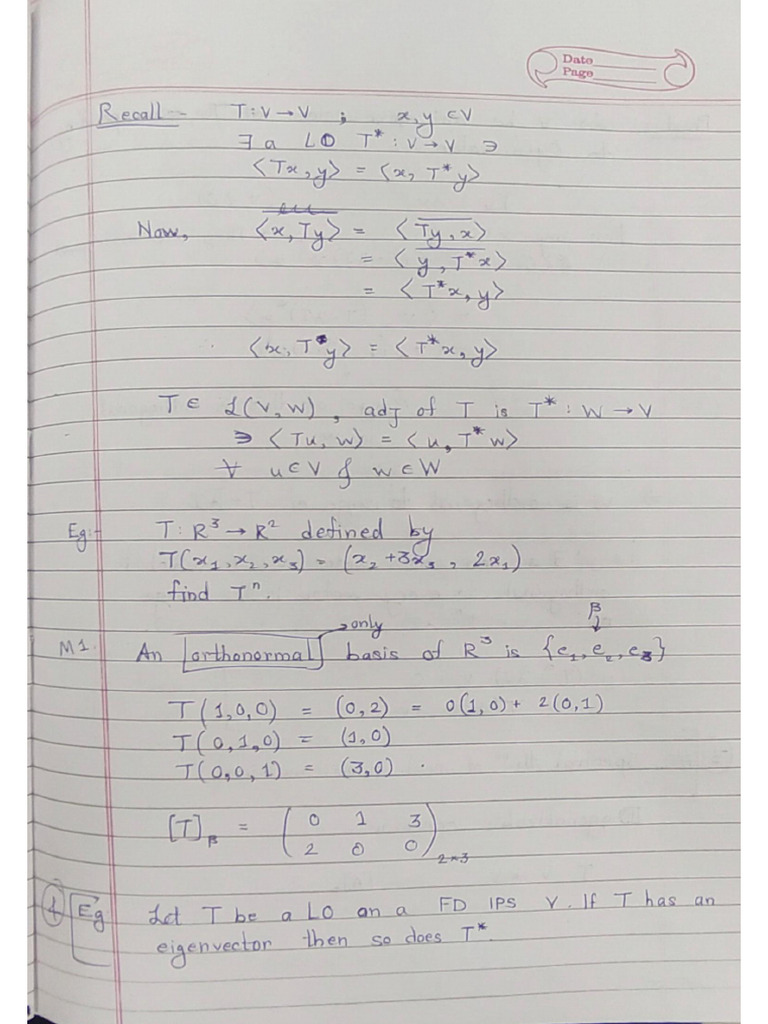 Date
Page
Recall - T : V → V ; x, y ∈ V
∃ a LO T* : V → V ∋
⟨Tx, y⟩ = ⟨x, T*y⟩
Now, ⟨x, Ty⟩ = ⟨Ty, x⟩
= ⟨y, T*x⟩
= ⟨T*x, y⟩
⟨x, Ty⟩ = ⟨T*x, y⟩
T ∈ L(V, W), adj of T is T* : W → V
∋ ⟨Tu, w⟩ = ⟨u, T*w⟩
∀ u ∈ V & w ∈ W
Eg:- T : R³ → R² defined by
T(x₁, x₂, x₃) = (x₂ + 3x₃, 2x₁)
find Tⁿ.
only β
M1. An orthonormal basis of R³ is {e₁, e₂, e₃}
T(1,0,0) = (0,2) = 0(1,0) + 2(0,1)
T(0,1,0) = (1,0)
T(0,0,1) = (3,0).
[T]β = ( 0 1 3
2 0 0 )2×3
① Eg Let T be a LO on a FD IPS V. If T has an
eigenvector then so does T*.